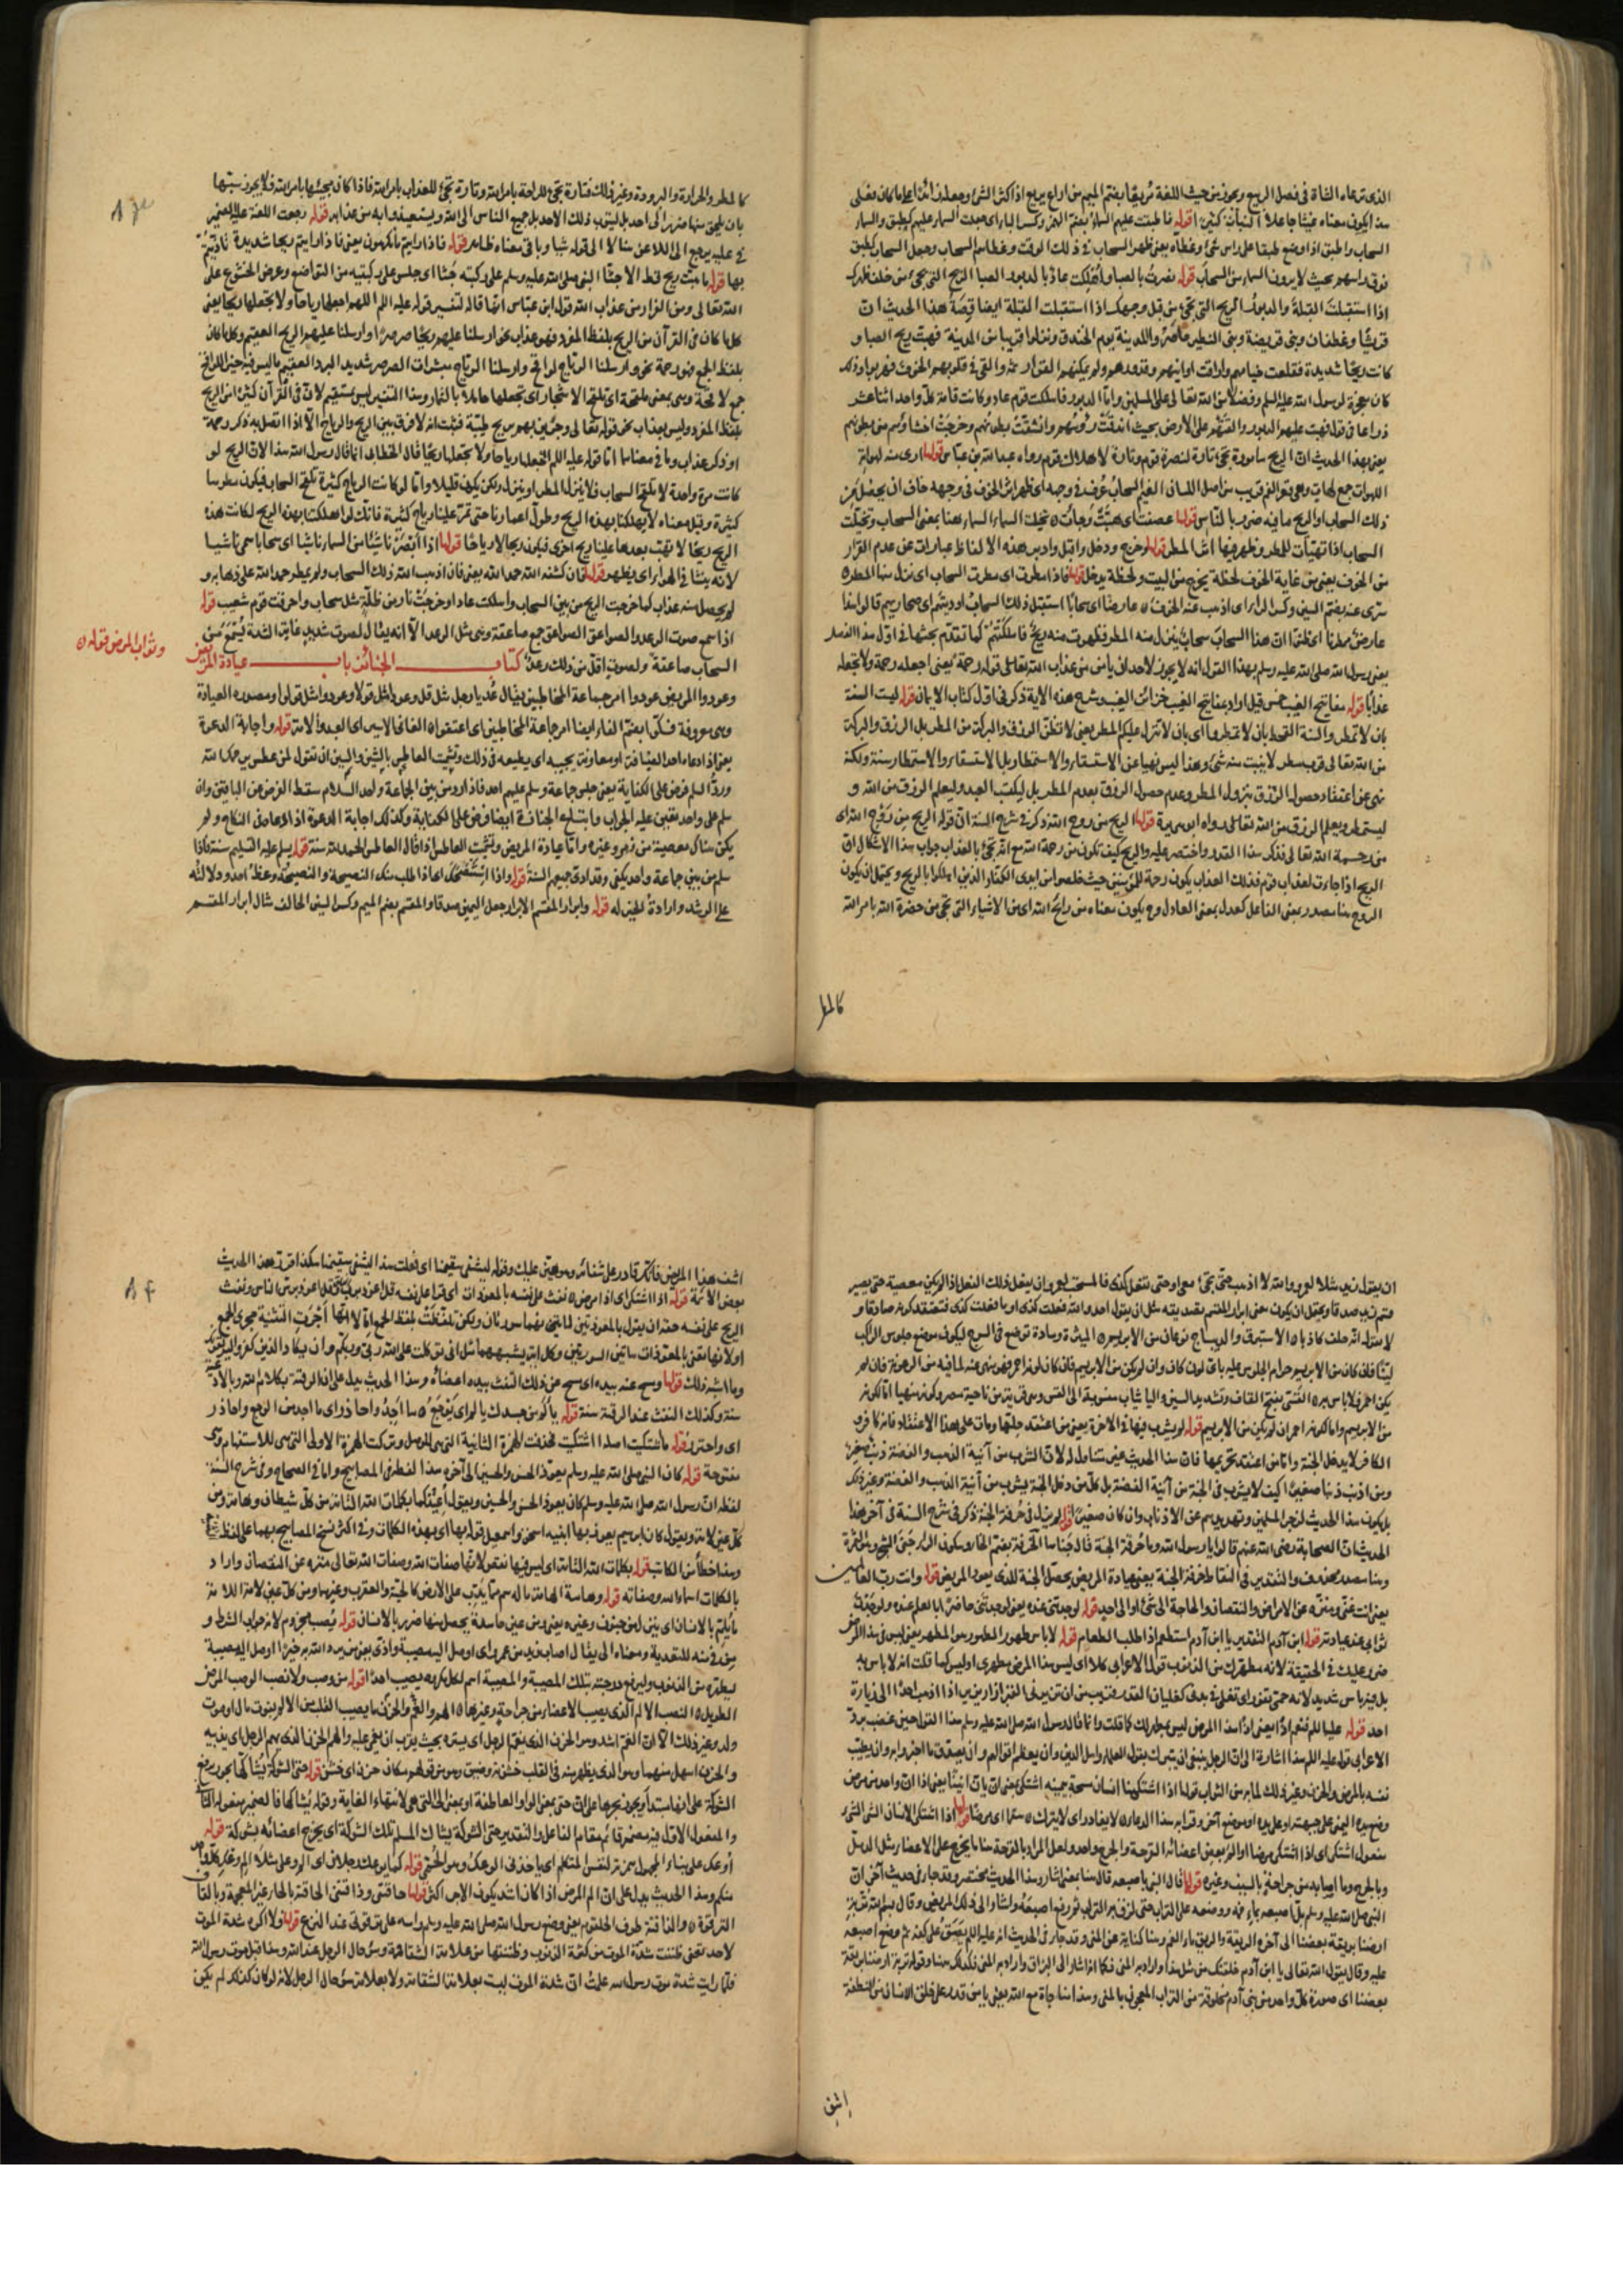 الذى ترعاه الشاة فى فصل الربيع ويجوز من حيث اللغة مُربعًا بضم الميم من اربع يربع اذا اكثر
السحاب واطبق اذا وضع طبقا على راس شئ وغطاه يعنى ظهر السحاب فى ذلك الوقت وغطاهم السحاب وجعل السحاب كطبق
فوق راسهم بحيث لا يرون السماء من السحاب قوله نصرت بالصبا واهلكت عاد بالدبور الصبا الريح التى تجئ من خلف ظهرك
اذا استقبلت القبلة والدبور الريح التى تجئ من قبل وجهك اذا استقبلت القبلة ايضا قصة هذا الحديث ان
قريشا وغطفان وبنى قريضة وبنى النضير حاصروا المدينة يوم الخندق ونزلوا قريبا من المدينة فهبت ريح الصبا و
كانت ريحًا شديدة فقلعت خيامهم واراقت اوانيهم وقدورهم ولم يمكنهم القرار ثمه والقى فى قلوبهم الخوف فهربوا وذلك
كان معجزة لرسول الله عليه السلم وفضلا من الله تعالى على المسلمين واما الدبور فاهلكت قوم عاد وكانت قامة كل واحد اثنا عشر
ذراعا فى قول فهبت عليهم الدبور والقتهم على الارض بحيث اندقت رؤسهم وانشقت بطونهم وخرجت احشاؤهم من بطونهم
يعنى بهذا الحديث ان الريح مامورة تجئ تارة لنصرة قوم وتارة لاهلاك قوم رواه عبد الله بن عباس قولها ارى منه لهواته
اللهوات جمع لهات وهى قعر الفم قريب من اصل اللسان الغيم السحاب عُرف فى وجهه اى ظهر اثر الخوف فى وجهه خاف ان يحصل من
ذلك السحاب او الريح ما فيه ضرر بالناس قولها عصفت اى هبّت وجاءت تخيلت السماء السماء هنا بمعنى السحاب وتخيلت
السحاب اذا تهيأت للمطر وظهر فيها اثر المطر قولها وخرج ودخل واقبل وادبر هذه الالفاظ عبارات عن عدم القرار
من الخوف يعنى من غاية الخوف لحظة يخرج من البيت ولحظة يدخل قولها فاذا مطرت اى مطرت السحاب اى نزل منها المطر
سرى عنه بضم السين وكسر الراء اى اذهب عنه الخوف عارضًا اى سحابًا استقبل ذلك السحاب اوديتهم اى صحاريهم قالوا هذا
عارض ممطرنا اى ظنوا ان هذا السحاب سحاب ينزل منه المطر فظهرت منه ريح فاهلكتهم كما تقدم بحثها فى اول هذا الفصل
يعنى رسول الله صلى الله عليه وسلم بهذا القول انه لا يجوز لاحد ان يأمن من عذاب الله تعالى قوله رحمة يعنى اجعله رحمة ولا تجعله
عذابًا قوله مفاتيح الغيب خمس قيل اراد بمفاتيح الغيب خزائن الغيب وشرح هذه الاية ذكر فى اول كتاب الايمان قوله ليست السنة
بان لا تمطروا السنة القحط بان لا تمطروا اى بان لا تنزل عليكم المطر يعنى لا تظن الرزق والبركة من المطر بل الرزق والبركة
من الله تعالى فرب مطر لا ينبت منه شئ وهذا ليس نهيا عن الاستسقاء والاستمطار بل الاستسقاء والاستمطار سنة ولكنه
نهى عن اعتقاد حصول الرزق بنزول المطر وعدم حصول الرزق بعدم المطر بل ليكتب العبد وليعلم الرزق من الله و
ليستمطر ويعلم الرزق من الله تعالى رواه ابو هريرة قولها الريح من روح الله ذكر فى شرح السنة ان قوله الريح من روح الله اى
من رحمة الله تعالى فذكر هذا القدر واختصر عليه والريح كيف تكون من رحمة الله مع انه تجئ بالعذاب جواب هذا الاشكال ان
الريح اذا جاءت لعذاب قوم فذلك العذاب يكون رحة للمؤمنين حيث خلصوا من ايدى الكفار الذين اهلكوا بالريح ويحتمل ان يكون
الروح هنا مصدر بمعنى الفاعل كعدل بمعنى العادل وح يكون معناه من رائح الله اى من الاشياء التى تجئ من حضرة الله بامر الله
كالمطر
٨٣
كالمطر والحرارة والبرودة وغير ذلك فتارة تجئ للراحة بامر الله وتارة تجئ للعذاب بامر الله فاذا كان مجيئها بامر الله فلا يجوز سبّها
بان يلحق منها ضرر الى احد بل ليتب ذلك الاحد بل جميع الناس الى الله ويستعيذوا به من عذابه قوله رجعت اللعنة عليه الضمير
فى عليه يرجع الى اللاعن قوله فاذا رايتم ما تكرهون يعنى فاذا رايتم ريحا شديدة تاذيتم
بها قوله ما هبت ريح قط الا جثا النبى صلى الله عليه وسلم على ركبتيه جثا اى جلس على ركبتيه من التواضع وعرض الخشوع على
الله تعالى ومن الفرار من عذاب الله قول ابن عباس انما قاله لتفسير قوله عليه السلم اللهم اجعلها رياحا ولا تجعلها ريحا يعنى
كل ما كان فى القرآن من الريح بلفظ المفرد فهو عذاب نحو ارسلنا عليهم ريحا صرصرًا وارسلنا عليهم الريح العقيم وكل ما كان
بلفظ الجمع فهو رحمة نحو وارسلنا الرياح لواقح وارسلنا الرياح مبشرات الصرصر شديد البرد العقيم ما ليس فيه خير اللواقح
جمع لاقحة وهى بمعنى ملقحة اى تلقح الاشجار اى تجعلها حاملة بالثمار وهذا التفسير ليس بمستقيم لان فى القرآن كثيرا من الريح
بلفظ المفرد وليس بعذاب نحو قوله تعالى وجرين بهم بريح طيبة فثبت انه لا فرق بين الريح والرياح الا اذا اتصل به ذكر رحمة
او ذكر عذاب اما قوله عليه السلم اجعلها رياحا ولا تجعلها ريحًا قال الخطابى انما قال رسول الله هذا لان الريح لو
كانت مرة واحدة لا تلقح السحاب فلا ينزل المطر او ينزل ولكن يكون قليلا واما لو كانت الرياح كثيرة تلقح السحاب فيكون مطرها
كثيرة وقيل معناه لا تهلكنا بهذه الريح وطول اعمارنا حتى تمر علينا رياح كثيرة فانك لو اهلكتنا بهذه الريح لكانت هذه
الريح ريحًا لا تهب بعدها علينا ريح اخرى فيكون ريحا لا رياحًا قولها اذا ابصر ناشئًا من السماء ناشئا اى سحابا سمى ناشيا
لانه ينشأ فى الهواء اى يظهر قولها فان كشفه الله حمد الله يعنى فان اذهب الله ذلك السحاب ولم يمطر حمد الله على ذهابه و
لم يحصل منه عذاب كما خرجت الريح من بين السحاب واهلكت عاد او خرجت نار من ظلة مثل سحاب واحرقت قوم شعيب قوله
اذا سمع صوت الرعد والصواعق الصواعق جمع صاعقة وهى مثل الرعد الا انه يقال لصوت شديد غاية الشدة يُسمع من
السحاب صاعقة ولصوت اقل من ذلك رعد كتاب الجنائز باب عيادة المريض
وثواب المرض قوله
وعودوا المريض عودوا امر جماعة المخاطبين يقال عُد يا رجل مثل قل وعودا مثل قولا وعودوا مثل قولوا ومصدره العيادة
وهى معروفة فكوا بضم الفاء ايضا امر جماعة المخاطبين اى اعتقوا العانى الاسير اى العبد والامة قوله واجابة الدعوة
يعنى اذا دعاه احد لضيافة او معاونة يجيبه اى يطيعه فى ذلك وتشميت العاطس بالشين والسين ان تقول لمن عطس يرحمك الله
وردّ السلم فرض على الكفاية يعنى جلس جماعة وسلم عليهم احد فاذا رد من بين الجماعة واحد السلام سقط الفرض عن الباقين وان
سلم على واحد تعين عليه الجواب واتباع الجنازة ايضا فرض على الكفاية وكذلك اجابة الدعوة اذا كان فى النكاح ولم
يكن هناك معصية من خمر وغيره واما عيادة المريض وتشميت العاطس اذا قال العاطس الحمد لله سنة قوله يسلم عليه التسليم سنة فاذا
سلم من بين جماعة واحد يكفى وقد ادى جميعهم السنة قوله واذا استنصحك اى اذا طلب منك النصيحة والنصيحة وعظ احد ودلالته
على الرشد وارادة الخير له قوله وابرار المقسم الابرار جعل اليمين صدقا والمقسم بضم الميم وكسر السين الحالف مثال ابرار المقسم
ان يقول زيد مثلا لعمرو والله لا اذهب حتى تجئ معى او حتى تفعل كذى فالمستحب لعمرو ان يفعل ذلك الفعل اذا لم يكن معصية حتى يصير
قسم زيد صدقا ويحتمل ان يكون معنى ابرار المقسم تصديقه مثل ان يقول احد والله فعلت كذى او ما فعلت كذى فتعتقد كونه صادقا و
لا تقول انه حلف كاذبا الاستبرق والديباج نوعان من الابريسم الميثرة وسادة توضع فى السرج ليكون موضع جلوس الراكب
لينًا فان كان من الابريسم حرام الجلوس عليه باى لون كان وان لم يكن من الابريسم فان كان لونه احمر فهو منهى عنه لما فيه من الرعونة فان لم
يكن احمر فلا باس به القسّى بفتح القاف وتشديد السين والياء ثياب منسوبة الى القس وهى قرية من ناحية مصر وكونه منهيا اما لكونه
من الابريسم واما لكونه احمر ان لم يكن من الابريسم قوله لم يشرب فيها فى الاخرة يعنى من اعتقد حلتها ومات على هذا الاعتقاد فانه كافر و
الكافر لا يدخل الجنة واما من اعتقد تحريمها فان هذا الحديث غير متناول له لان الشرب من آنية الذهب والفضة ذنب صغير
ومن اذنب ذنبا صغيرا كيف لا يشرب فى الجنة من آنية الفضة بل كل من دخل الجنة يشرب من آنية الذهب والفضة وغير ذلك
بل يكون هذا الحديث لزجر المسلمين وتهديدهم عن الاذناب وان كان صغيرًا قوله لم يزل فى خرفة الجنة ذكر فى شرح السنة فى آخر هذا
الحديث ان الصحابة رضى الله عنهم قالوا يا رسول الله وما خرفة الجنة قال جناها الخرفة بضم الخاء وسكون الراء جنى الشجر وهى الثمرة
وهنا مضاف محذوف والتقدير فى التقاط خرفة الجنة يعنى بعيادة المريض يحصل الجنة للذى يعود المريض قوله وانت رب العالمين
يعنى انت غنى ومنزه عن الامراض والنقصان والحاجة الى شئ او الى احد قوله لوجدتنى عنده يعنى لوجدتنى حاضرًا بالعلم عنده ولوجدت
ثوابى عند عيادته قوله ابن آدم التقدير يا ابن آدم استطعم اذا طلب الطعام قوله لا باس طهور الطهور هو المطهر يعنى ليس فى هذا المرض
ضرر عليك فى الحقيقة لانه مطهرك من الذنوب قول الاعرابى كلا اى ليس هذا المرض مطهرى او ليس كما قلت انه لا باس به
بل فيه باس شديد لانه حمى تفور اى تغلى فى بدنى كغليان القدر فقريب من ان تزيرنى القبور ازار يزير اذا اذهب احدًا الى زيارة
احد قوله عليه السلم فنعم اذًا يعنى اذًا هذا المرض ليس بمطهر لك كما قلت وانما قال رسول الله صلى الله عليه وسلم هذا القول حين غضب بردّ
الاعرابى قوله عليه السلم هذا اشارة الى ان الرجل ينبغى ان يتبرك بقول العلماء واهل الدين وان يعظم اقوالهم وان يصدق ما اخبروا به وان يطيب
نفسه بالمرض والحزن وغير ذلك لما به من الثواب قولها اذا اشتكى منا انسان مسحه بيمينه اشتكى بمعنى ان يعنى اذا ان واحد من مرض
وضع يده اليمنى على جبهته او على يده او موضع آخر وقرا به هذا الدعاء لا يغادر اى لا يترك سقما اى مرضا قولها اذا اشتكى الانسان الشئ الشئ
مفعول اشتكى اى اذا اشتكى مريضا او الم بعض اعضائه القرحة والجرح واحد ولعل المراد بالقرحة هنا ما يخرج على الاعضاء مثل الدمل
وبالجرح وما اصابه من جراحة بالسيف وغيره قولها قال النبى باصبعه قال هنا بمعنى اشار وهذا الحديث مختصر وقد جاء فى حديث آخر ان
النبى صلى الله عليه وسلم بلّ اصبعه بماء فمه ووضعه على التراب حتى لزق به التراب ثم رفع اصبعه واشار الى ذلك المريض وقال بسم الله تربة
ارضنا بريقة بعضنا الى آخره الريقة والريق ماء الفم وهنا كناية عن المنى وقد جاء فى الحديث انه عليه السلم بصق على كفه ثم وضع اصبعه
عليه وقال يقول الله تعالى يا ابن آدم خلقتك من مثل هذا واراد به المنى فكما انه اشار الى البزاق واراد به المنى فكذلك هنا وقوله تربة ارضنا بريقة
بعضنا اى صورة كل واحد من بنى آدم مخلوقة من التراب المعجون بالمنى وهذا مناجاة مع الله يعنى يا من قدر على خلق الانسان من النطفة
اشف
٨٤
اشف هذا المريض فانك قادر على شفائه وهو هين عليك وقوله ليشفى سقيمنا اى فعلت هذا ليشفى سقيمنا هكذا شرح هذا الحديث
بعض الائمة قوله اذا اشتكى اى اذا مرض نفث على نفسه بالمعوذات اى قرا على نفسه قل اعوذ برب الفلق وقل اعوذ برب الناس ونفث
الريح على نفسه حقه ان يقول بالمعوذتين لانهما سورتان ولكن تلفظت بلفظ الجمع اما لانها اجرت التثنية مجرى الجمع
وما اشبه ذلك قولها ومسح عنه بيده اى مسح عن ذلك النفث بيده اعضاءه وهذا الحديث يدل على ان الرقية بكلام الله وبالادعية
سنة وكذلك النفث عند الرقية سنة قوله يألم من جسدك يالم اى يتوجع ما اجد واحاذر اى ما اجد من الوجع واحاذر
اى واحترز قوله اشتكيت اصله أاشتكيت فحذفت الهمزة الثانية التى هى للوصل وتركت الهمزة الاولى التى هى للاستفهام وهى
مفتوحة قوله كان النبى صلى الله عليه وسلم يعوذ الحسن والحسين الى آخره هذا لفظه فى المصابيح واما فى الصحاح وفى شرح السنة
لفظه ان رسول الله صلى الله عليه وسلم كان يعوذ الحسن والحسين ويقول اعيذكما بكلمات الله التامة من كل شيطان وهامة ومن
كل عين لامة ويقول كان ابراهيم يعوذ بها ابنيه اسحق واسمعيل قوله بها اى بهذه الكلمات وفى اكثر نسخ المصابيح بهما على لفظ
وهذا خطأ من الكاتب قوله بكلمات الله التامة اى ليس فيها نقص لانها صفات الله وصفات الله تعالى منزه عن النقصان واراد
بالكلمات اسماء الله وصفاته قوله وهامة الهامة ما له سم مما يدب على الارض كالحية والعقرب وغيرهما ومن كل عين لامة اللامة
ما يلم بالانسان اى ينزل من جنون وغيره يعنى ومن عين حاسدة يحصل منها ضرر بالانسان قوله يُصب مجزوم لانه جواب الشرط و
من فى منه للتعدية ومعناه الى يقال اصاب زيد من عمرو اى اوصل اليه مصيبة واذى يعنى من يرد الله به خيرا اوصل اليه مصيبة
ليطهره من الذنوب وليرفع درجته بتلك المصيبة والمصيبة اسم لكل مكروه يصيب احدًا قوله من وصب ولا نصب الوصب المرض
الطويل النصب الالم الذى يصيب الاعضاء من جراحة وغيرها الهم والغم والحزن ما يصيب القلب من الالم بفوت مال او موت
ولد وغير ذلك الا ان الغم اشد وهو الحزن الذى يغم الرجل اى يستره بحيث يقرب ان يغمى عليه والهم الحزن الذى يهم الرجل اى يذيبه
والحزن اسهل منهما وهو الذى يظهر منه فى القلب خشونة وضيق وهو من قولهم مكان حزن اى خشن قوله حتى الشوكة يشاكها يجوز رفع
الشوكة على انها مبتدأ ويجوز جرها على ان حتى بمعنى الواو العاطفة او بمعنى الى التى هى لانتهاء الغاية وقوله يشاكها
والمفعول الاول فيه مضمر قائم مقام الفاعل والتقدير حتى الشوكة يشاك المسلم تلك الشوكة اى يجرح اعضائه بشوكة قوله
أوعك على بناء المجهول بهمزة لنفس المتكلم اى ياخذنى الوعك وهو الحمى قوله كما يوعك رجلان
منكم وهذا الحديث يدل على ان الم المرض اذا كان اشد يكون الاجر اكثر قولها حاقنتى وذاقنتى الحاقنة بالحاء غير المعجمة وبالقاف
الترقوة والذاقنة طرف الحلقوم يعنى وضع رسول الله صلى الله عليه وسلم راسه على ترقوتى عند النزع قولها ولا اكره شدة الموت
لاحد تعنى ظننت شدة الموت من كثرة الذنوب وظننتها من علامة الشقاوة وسوء حال الرجل عند الله وهذا قبل موت رسول الله
فلما رايت شدة موت رسول الله علمت ان شدة الموت ليست بعلامة الشقاوة ولا بعلامة سوء حال الرجل لانه لو كان كذلك لم يكن